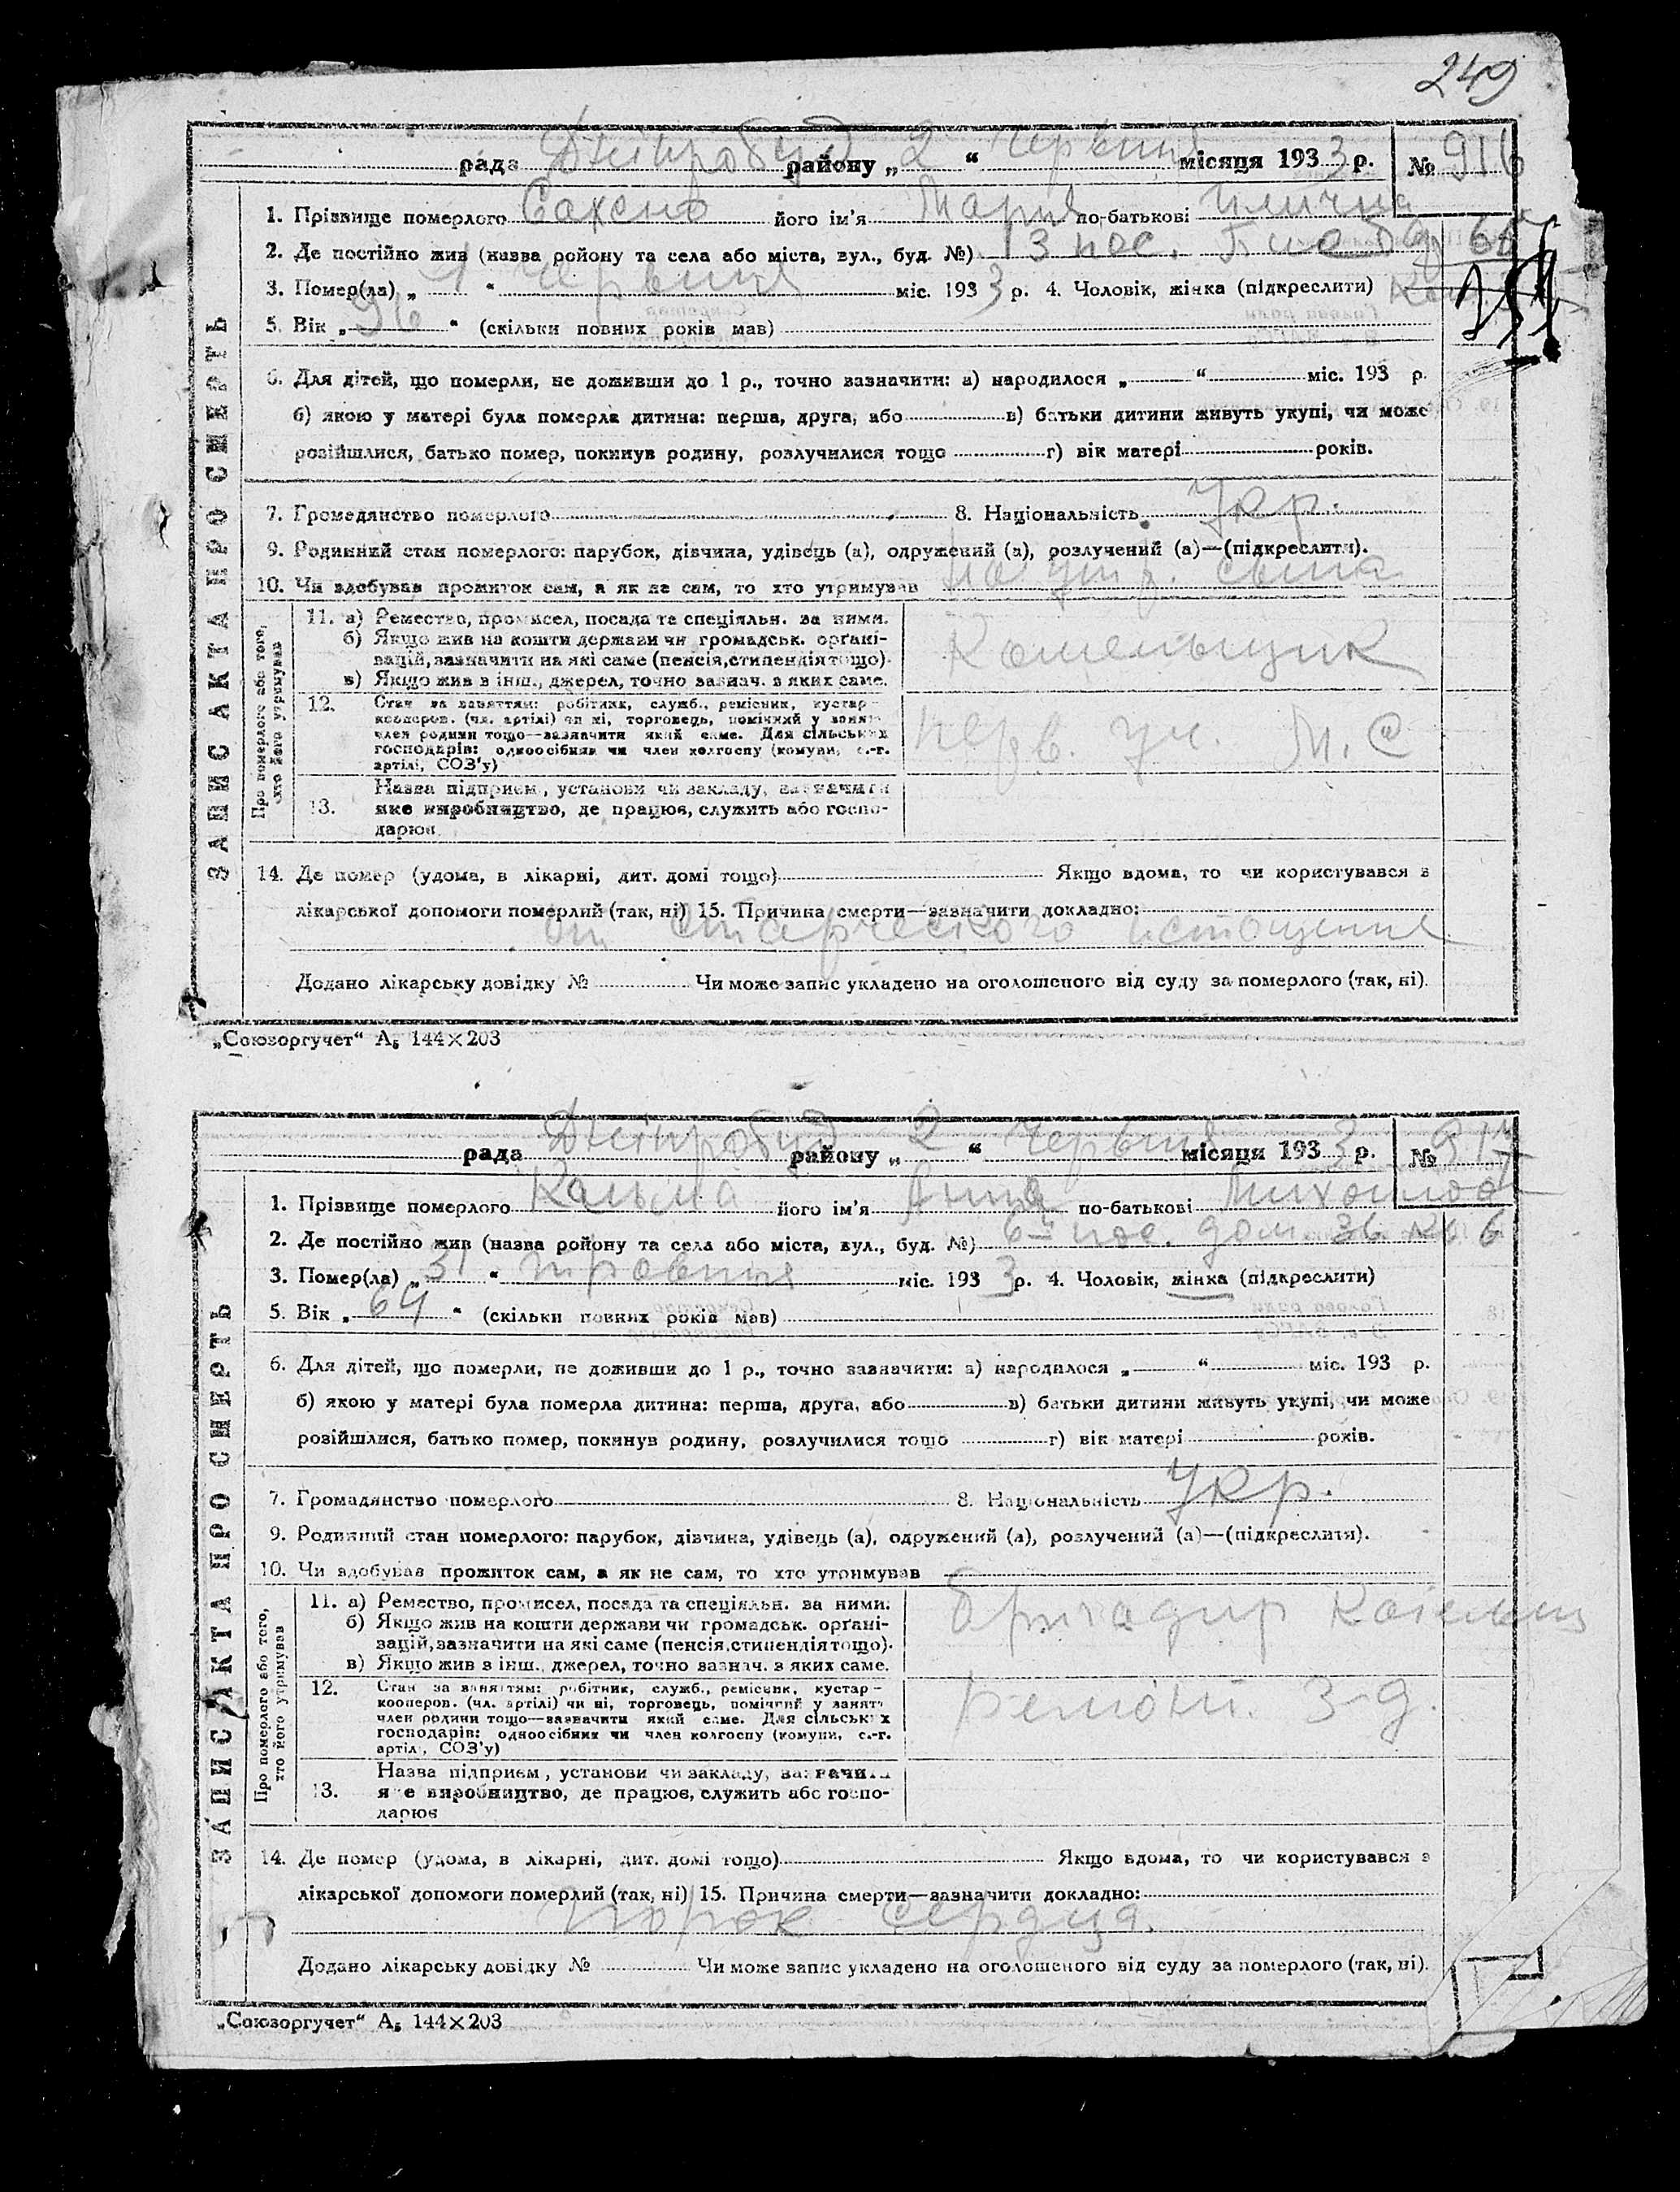 249
рада Дніпробуд району „ 2 “ червня місяця 193 3 р. № 916
1. Прізвище померлого його ім'я Мария по-батькові
2. Де постійно жив (назва ройону та села або міста, вул., буд. №) 13 пос.
3. Помер(ла) „ 1 “ червня міс. 193 3 р. 4. Чоловік, жінка (підкреслити)
5. Вік „ 96 “ (скільки повних років мав)
6. Для дітей, що померли, не доживши до 1 р., точно зазначити: а) народилося „ “ міс. 193 р.
б) якою у матері була померла дитина: перша, друга, або в) батьки дитини живуть укупі, чи може
розійшлися, батько помер, покинув родину, розлучилися тощо г) вік матері років.
7. Громадянство померлого 8. Національність Укр.
9. Родинний стан померлого: парубок, дівчина, удівець (а), одружений (а), розлучений (а)—(підкреслити).
10. Чи здобував прожиток сам, а як не сам, то хто утримував на утр. сына
ЗАПИС АКТА ПРО СМЕРТЬ
Про померлого або того, хто його утримував
11. а) Ремество, промисел, посада та спеціяльн. за ними.
б) Якщо жив на кошти держави чи громадськ. орґані-
зацій, зазначити на які саме (пенсія, стипендія тощо).
в) Якщо жив з інш., джерел, точно зазнач. з яких саме.
12. Стан за заняттям: робітник, служб., ремісник, кустар-
кооперов. (чл. артілі) чи ні, торговець, помічний у занят.
член родини тощо—зазначити який саме. Для сільських
господарів: одноосібник чи член колгоспу (комуни, с.-г.
артілі, СОЗ'у)
М. С
13. Назва підприєм., установи чи закладу, зазначити
яке виробництво, де працює, служить або госпо-
дарює
14. Де помер (удома, в лікарні, дит. домі тощо) Якщо вдома, то чи користувався з
лікарської допомоги померлий (так, ні) 15. Причина смерти—зазначити докладно:
от старческого истощения
Додано лікарську довідку № Чи може запис укладено на оголошеного від суду за померлого (так, ні).
„Союзоргучет“ А₅ 144×203
рада Дніпробуд району „ 2 “ червня місяця 193 3 р. № 917
1. Прізвище померлого його ім'я Анна по-батькові
2. Де постійно жив (назва ройону та села або міста, вул., буд. №) 6 пос. дом 36 кв 6
3. Помер(ла) „ 31 “ травня міс. 193 3 р. 4. Чоловік, жінка (підкреслити)
5. Вік „ 64 “ (скільки повних років мав)
6. Для дітей, що померли, не доживши до 1 р., точно зазначити: а) народилося „ “ міс. 193 р.
б) якою у матері була померла дитина: перша, друга, або в) батьки дитини живуть укупі, чи може
розійшлися, батько помер, покинув родину, розлучилися тощо г) вік матері років.
7. Громадянство померлого 8. Національність Укр.
9. Родинний стан померлого: парубок, дівчина, удівець (а), одружений (а), розлучений (а)—(підкреслити).
10. Чи здобував прожиток сам, а як не сам, то хто утримував
ЗАПИС АКТА ПРО СМЕРТЬ
Про померлого або того, хто його утримував
11. а) Ремество, промисел, посада та спеціяльн. за ними.
б) Якщо жив на кошти держави чи громадськ. орґані-
зацій, зазначити на які саме (пенсія, стипендія тощо).
в) Якщо жив з інш., джерел, точно зазнач. з яких саме.
бригадир
12. Стан за заняттям: робітник, служб., ремісник, кустар-
кооперов. (чл. артілі) чи ні, торговець, помічний у занят.
член родини тощо—зазначити який саме. Для сільських
господарів: одноосібник чи член колгоспу (комуни, с.-г.
артілі, СОЗ'у)
Ремонт. З-д.
13. Назва підприєм., установи чи закладу, зазначити
яке виробництво, де працює, служить або госпо-
дарює
14. Де помер (удома, в лікарні, дит. домі тощо) Якщо вдома, то чи користувався з
лікарської допомоги померлий (так, ні) 15. Причина смерти—зазначити докладно:
порок сердца.
Додано лікарську довідку № Чи може запис укладено на оголошеного від суду за померлого (так, ні).
„Союзоргучет“ А₅ 144×203